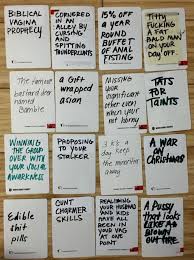 BIBLICAL
VAGINA
PROPHECY
CORNERED
IN AN
ALLEY BY
CURSING
AND
SPITTING
15% OFF
a year
ROUND
BUFFET
OF ANAL
FISTING
Titty
FUCKING
A FAT
BALD MAN
ON YOUR
DAY OFF.
The famous
bastard
named
a Gift
wrapped
asian
MISSING
YOUR
Significant
other
even
WHEN
TATS
FOR
TAINTS
WINNING
THE GROUP
OVER WITH
YOUR SOCIAL
AWKWARDNESS
PROPOSING
TO YOUR
STALKER
day
keep the
minorities
away
A WAR
ON
CHRISTMAS
Edible
shit
pills
CUNT
CHARMER
SKILLS
REALIZING
YOUR HUSBAND
AND KIDS
HAVE ALL
BEEN IN
YOUR VAG
AT ONE
POINT
A PUSSY
that looks
LIKE A
BLOWN
OUT TIRE